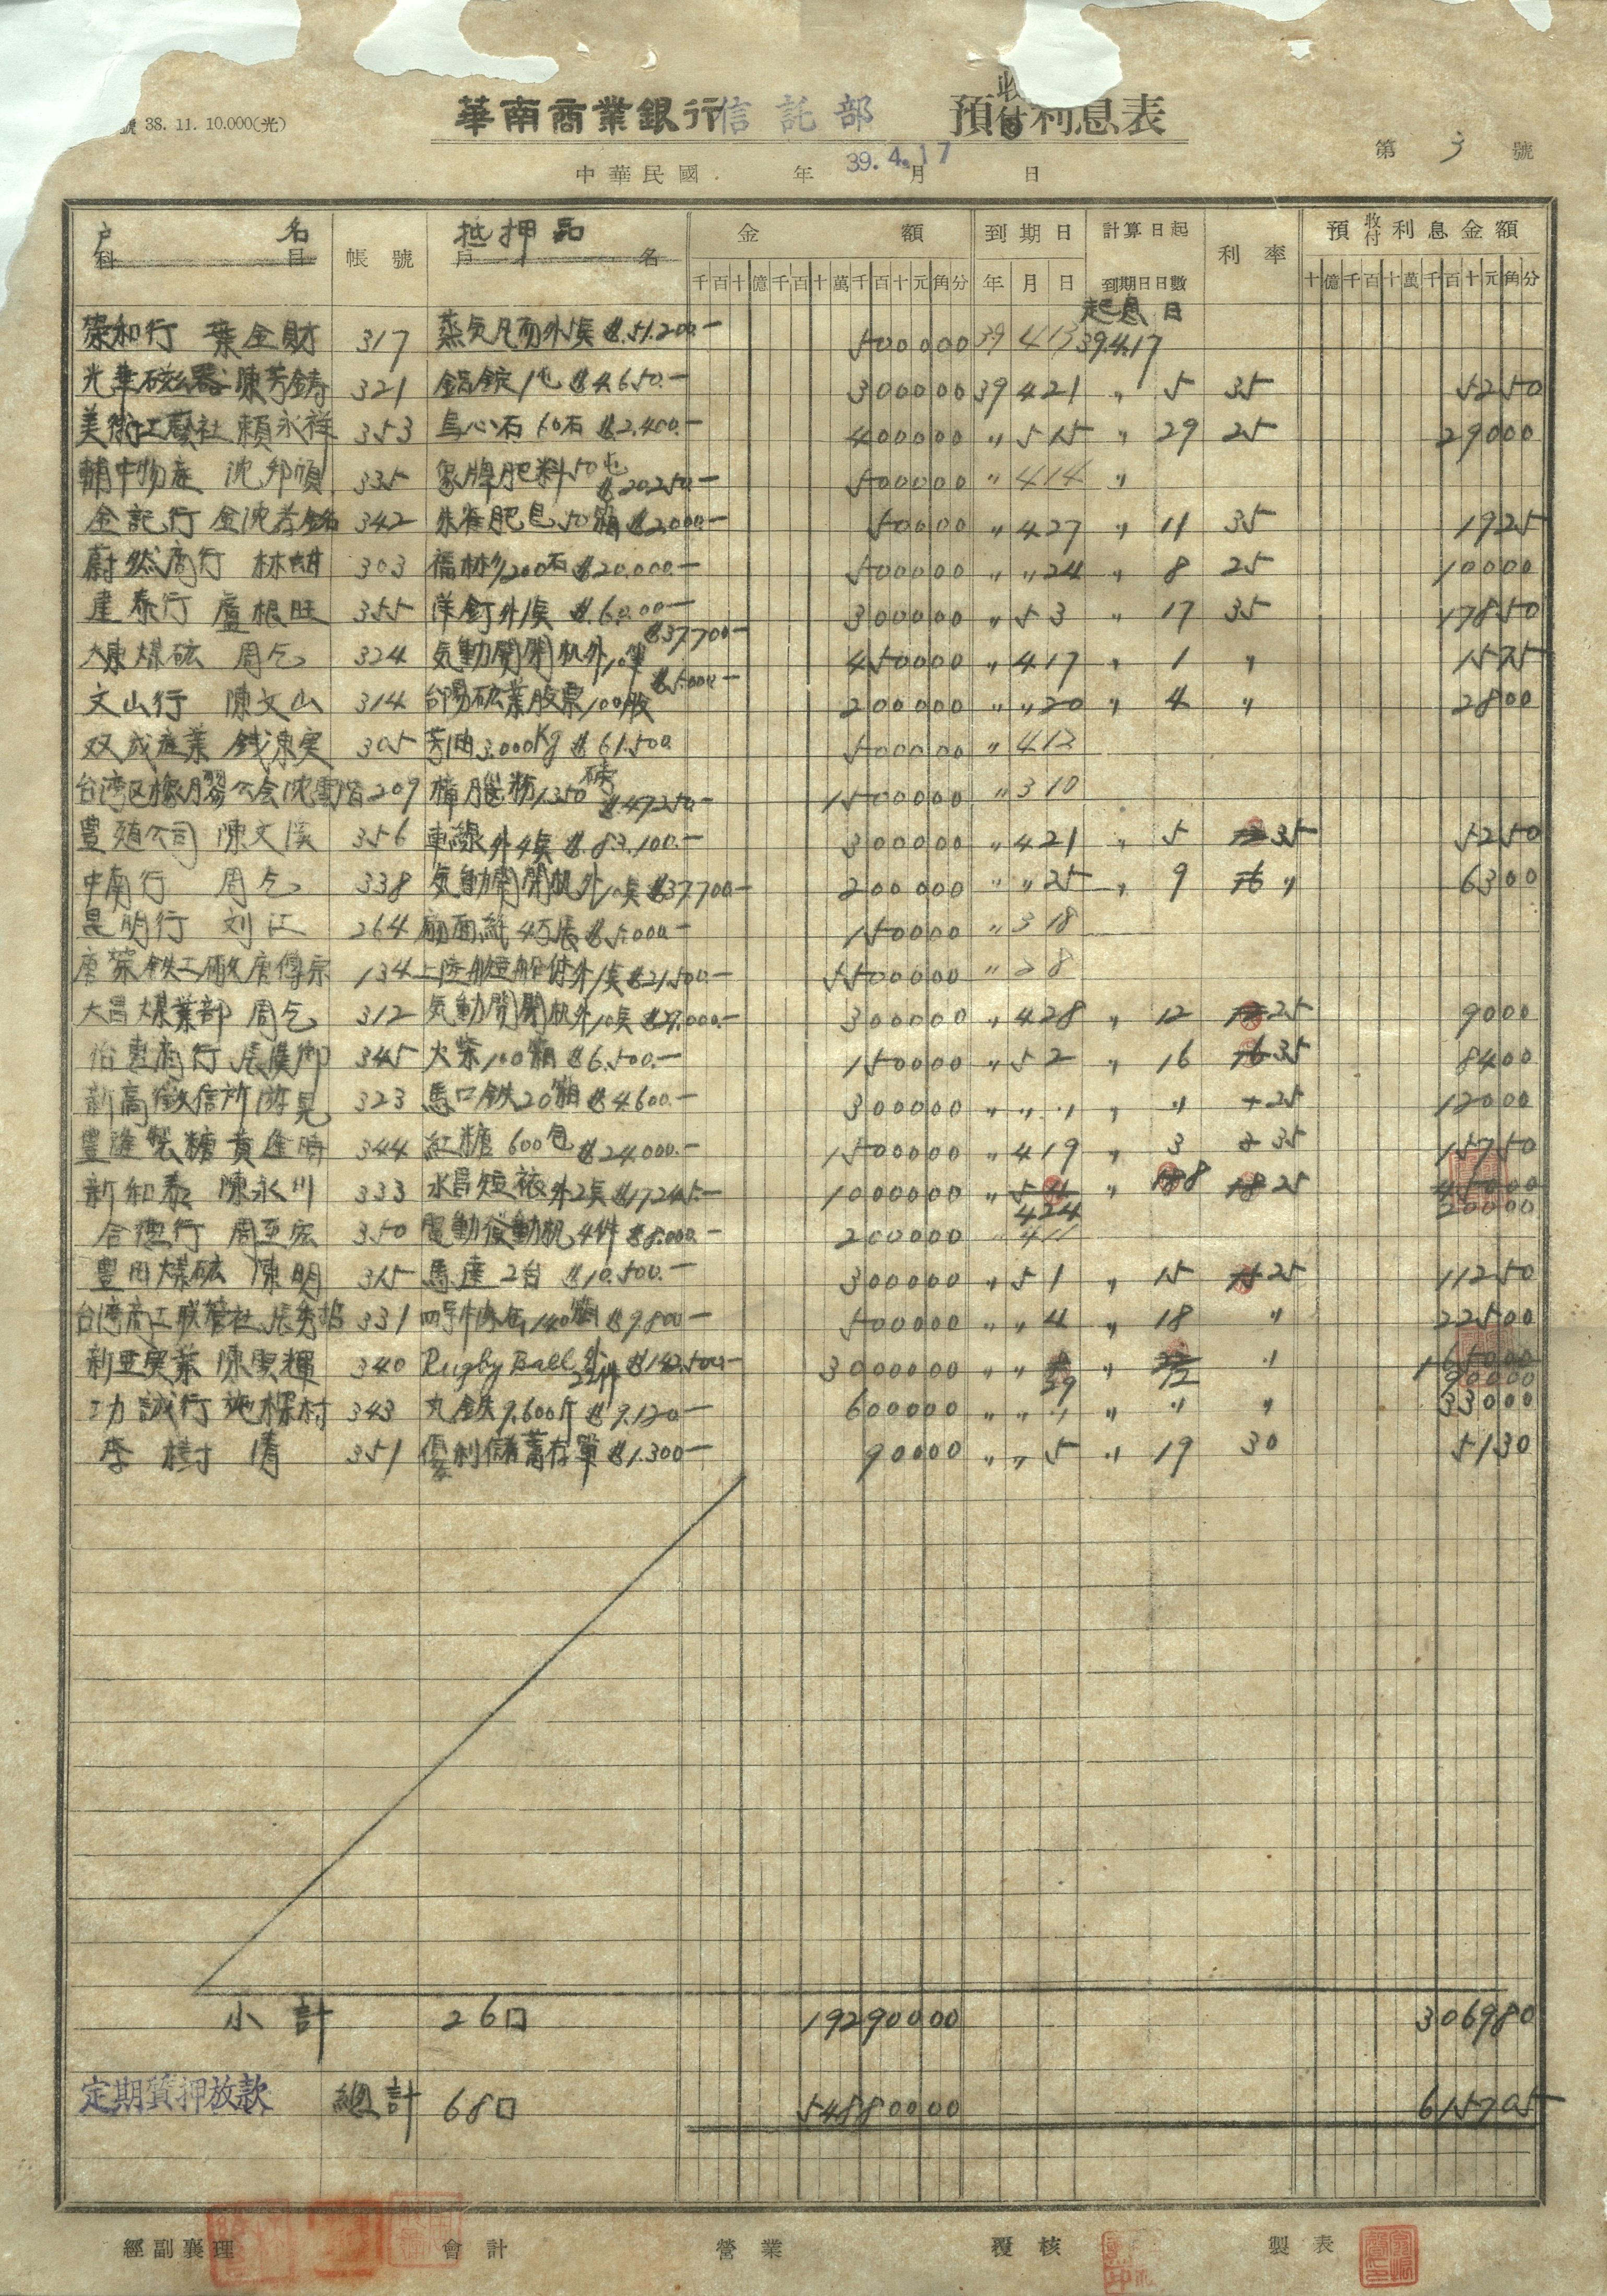 號 38. 11. 10.000(光)
華南商業銀行信託部 預收付利息表
中華民國 年 月 日
39. 4. 17
第 3 號
戶名 帳號 抵押品 金額 到期日 計算日起 利率 預收付利息金額
科目 戶名
千百十億千百十萬千百十元角分 年 月 日 到期日日數 十億千百十萬千百十元角分
起息日
榮和行 葉金財 317 蒸気凡而外1矣 $51.200.— 500000 39 4 13 39.4.17
光華磁器 陳芳鑄 321 鋁錠1屯 $4.650.— 300000 39 4 21 〃 5 35 5250
美術工藝社 賴永祥 353 烏心石 60石 $2.400.— 400000 〃 5 15 〃 29 25 29000
輔中物產 沈邦頎 335 象牌肥料50屯 $20.250.— 500000 〃 4 14 〃
金記行 342 朱雀肥皂50箱 $2.000.— 50000 〃 4 27 〃 11 35 1925
蔚然商行 303 福杉1200石 $20.000.— 500000 〃 〃 24 〃 8 25 10000
建泰行 盧根旺 355 洋釘外1矣 $60.00— 300000 〃 5 3 〃 17 35 17850
大東煤砿 周乞 324 気動開閉机外10矣 $37.700— 450000 〃 4 17 〃 1 〃 1575
文山行 陳文山 314 台陽砿業股票100股 $5.000.— 200000 〃 〃 20 〃 4 〃 2800
双成產業 305 3.000Kg $61.500. 500000 〃 4 13
台湾区橡膠公会 沈 209 樟腦粉1350磅 $47250.— 1500000 〃 3 10
豊殖公司 陳文溪 356 車線外4矣 $83.100.— 300000 〃 4 21 〃 5 35 5250
中南行 周乞 338 気動開閉机外10矣 $37.700— 200000 〃 〃 25 〃 9 16 〃 6300
昆明行 刘江 264 扇面紙 4万張 $5.000.— 150000 〃 3 18
唐榮鉄工廠 唐傳宗 134 外1矣 $21.500.— 5500000 〃 2 8
大昌煤業部 周乞 312 気動開閉机外10矣 $29.000.— 300000 〃 4 28 〃 12 25 9000
怡惠商行 345 火柴100箱 $6.500.— 150000 〃 5 2 〃 16 16 35 8400
新高徵信所 游晃 323 馬口鉄20箱 $4.600.— 300000 〃 〃 〃 〃 〃 25 12000
豊隆製糖 黃逢時 344 紅糖 600包 $24.000.— 1500000 〃 4 19 3 35 15750
新和泰 陳永川 333 水昌短袜外2矣 $17.245.— 1000000 〃 5 〃 8 18 25 45000
4 24 20000
合德行 周亞宏 350 電動發動机 4件 $8.000.— 200000 〃 4 11
豊田煤砿 陳明 315 馬達 2台 $10.500.— 300000 〃 5 1 〃 15 25 11250
台湾商工聯營社 331 140箱 $9.800— 500000 〃 〃 4 18 〃 22500
新亞実業 陳興輝 340 Rugby Ball 外22件 $142.500— 3000000 〃 〃 〃 〃 165000
29 12 90000
功誠行 343 丸鉄9.600斤 $9.120.— 600000 〃 〃 〃 〃 〃 〃 33000
李樹清 351 優利儲蓄存單 $1.300— 90000 〃 〃 5 〃 19 30 5130
小計 26口 19290000 306980
定期質押放款 總計 68口 54880000 615705
經副襄理 會計 營業 覆核 製表